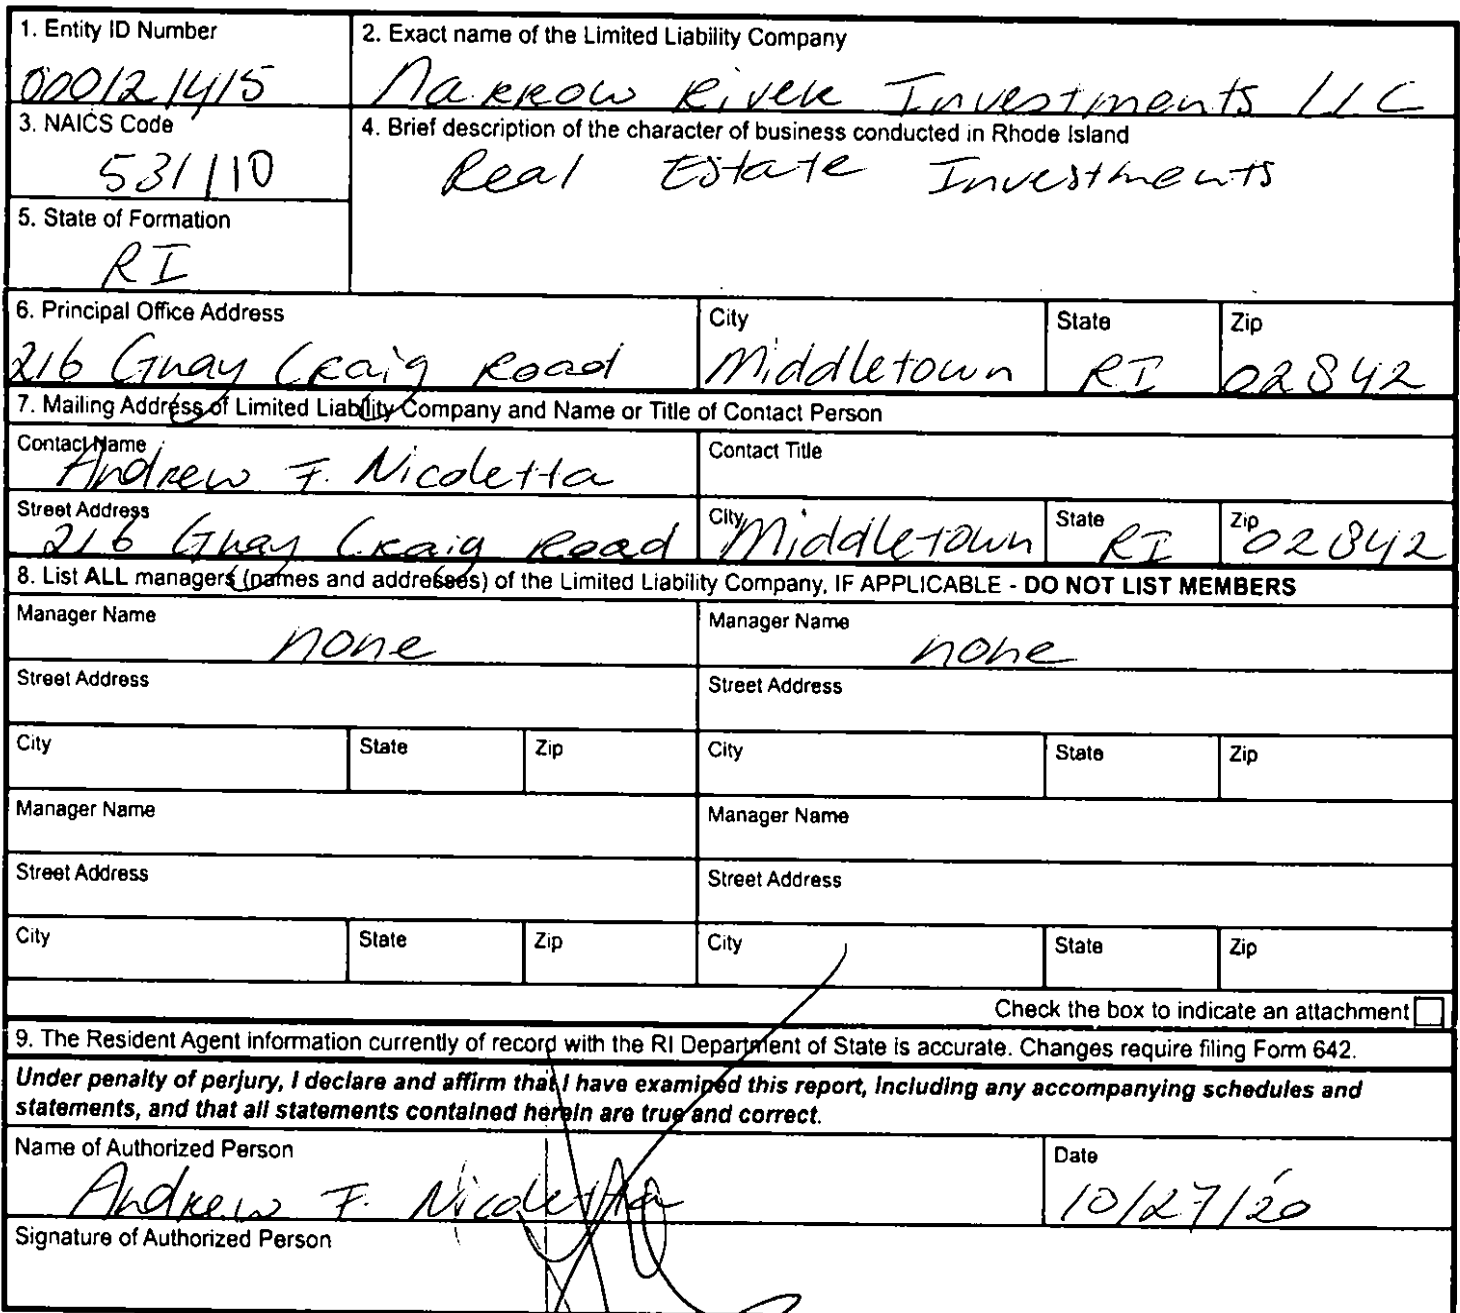 1. Entity ID Number
000121415
2. Exact name of the Limited Liability Company
Narrow River Investments LLC
3. NAICS Code
531110
4. Brief description of the character of business conducted in Rhode Island
Real Estate Investments
5. State of Formation
RI
6. Principal Office Address
216 Gray Craig Road
City
Middletown
State
RI
Zip
02842
7. Mailing Address of Limited Liability Company and Name or Title of Contact Person
Contact Name
Andrew F. Nicoletta
Contact Title
Street Address
216 Gray Craig Road
City
Middletown
State
RI
Zip
02842
8. List ALL managers (names and addresses) of the Limited Liability Company, IF APPLICABLE - DO NOT LIST MEMBERS
Manager Name
none
Manager Name
none
Street Address
Street Address
City State Zip City State Zip
Manager Name
Manager Name
Street Address
Street Address
City State Zip City State Zip
Check the box to indicate an attachment
9. The Resident Agent information currently of record with the RI Department of State is accurate. Changes require filing Form 642.
Under penalty of perjury, I declare and affirm that I have examined this report, including any accompanying schedules and
statements, and that all statements contained herein are true and correct.
Name of Authorized Person
Andrew F. Nicoletta
Date
10/27/20
Signature of Authorized Person